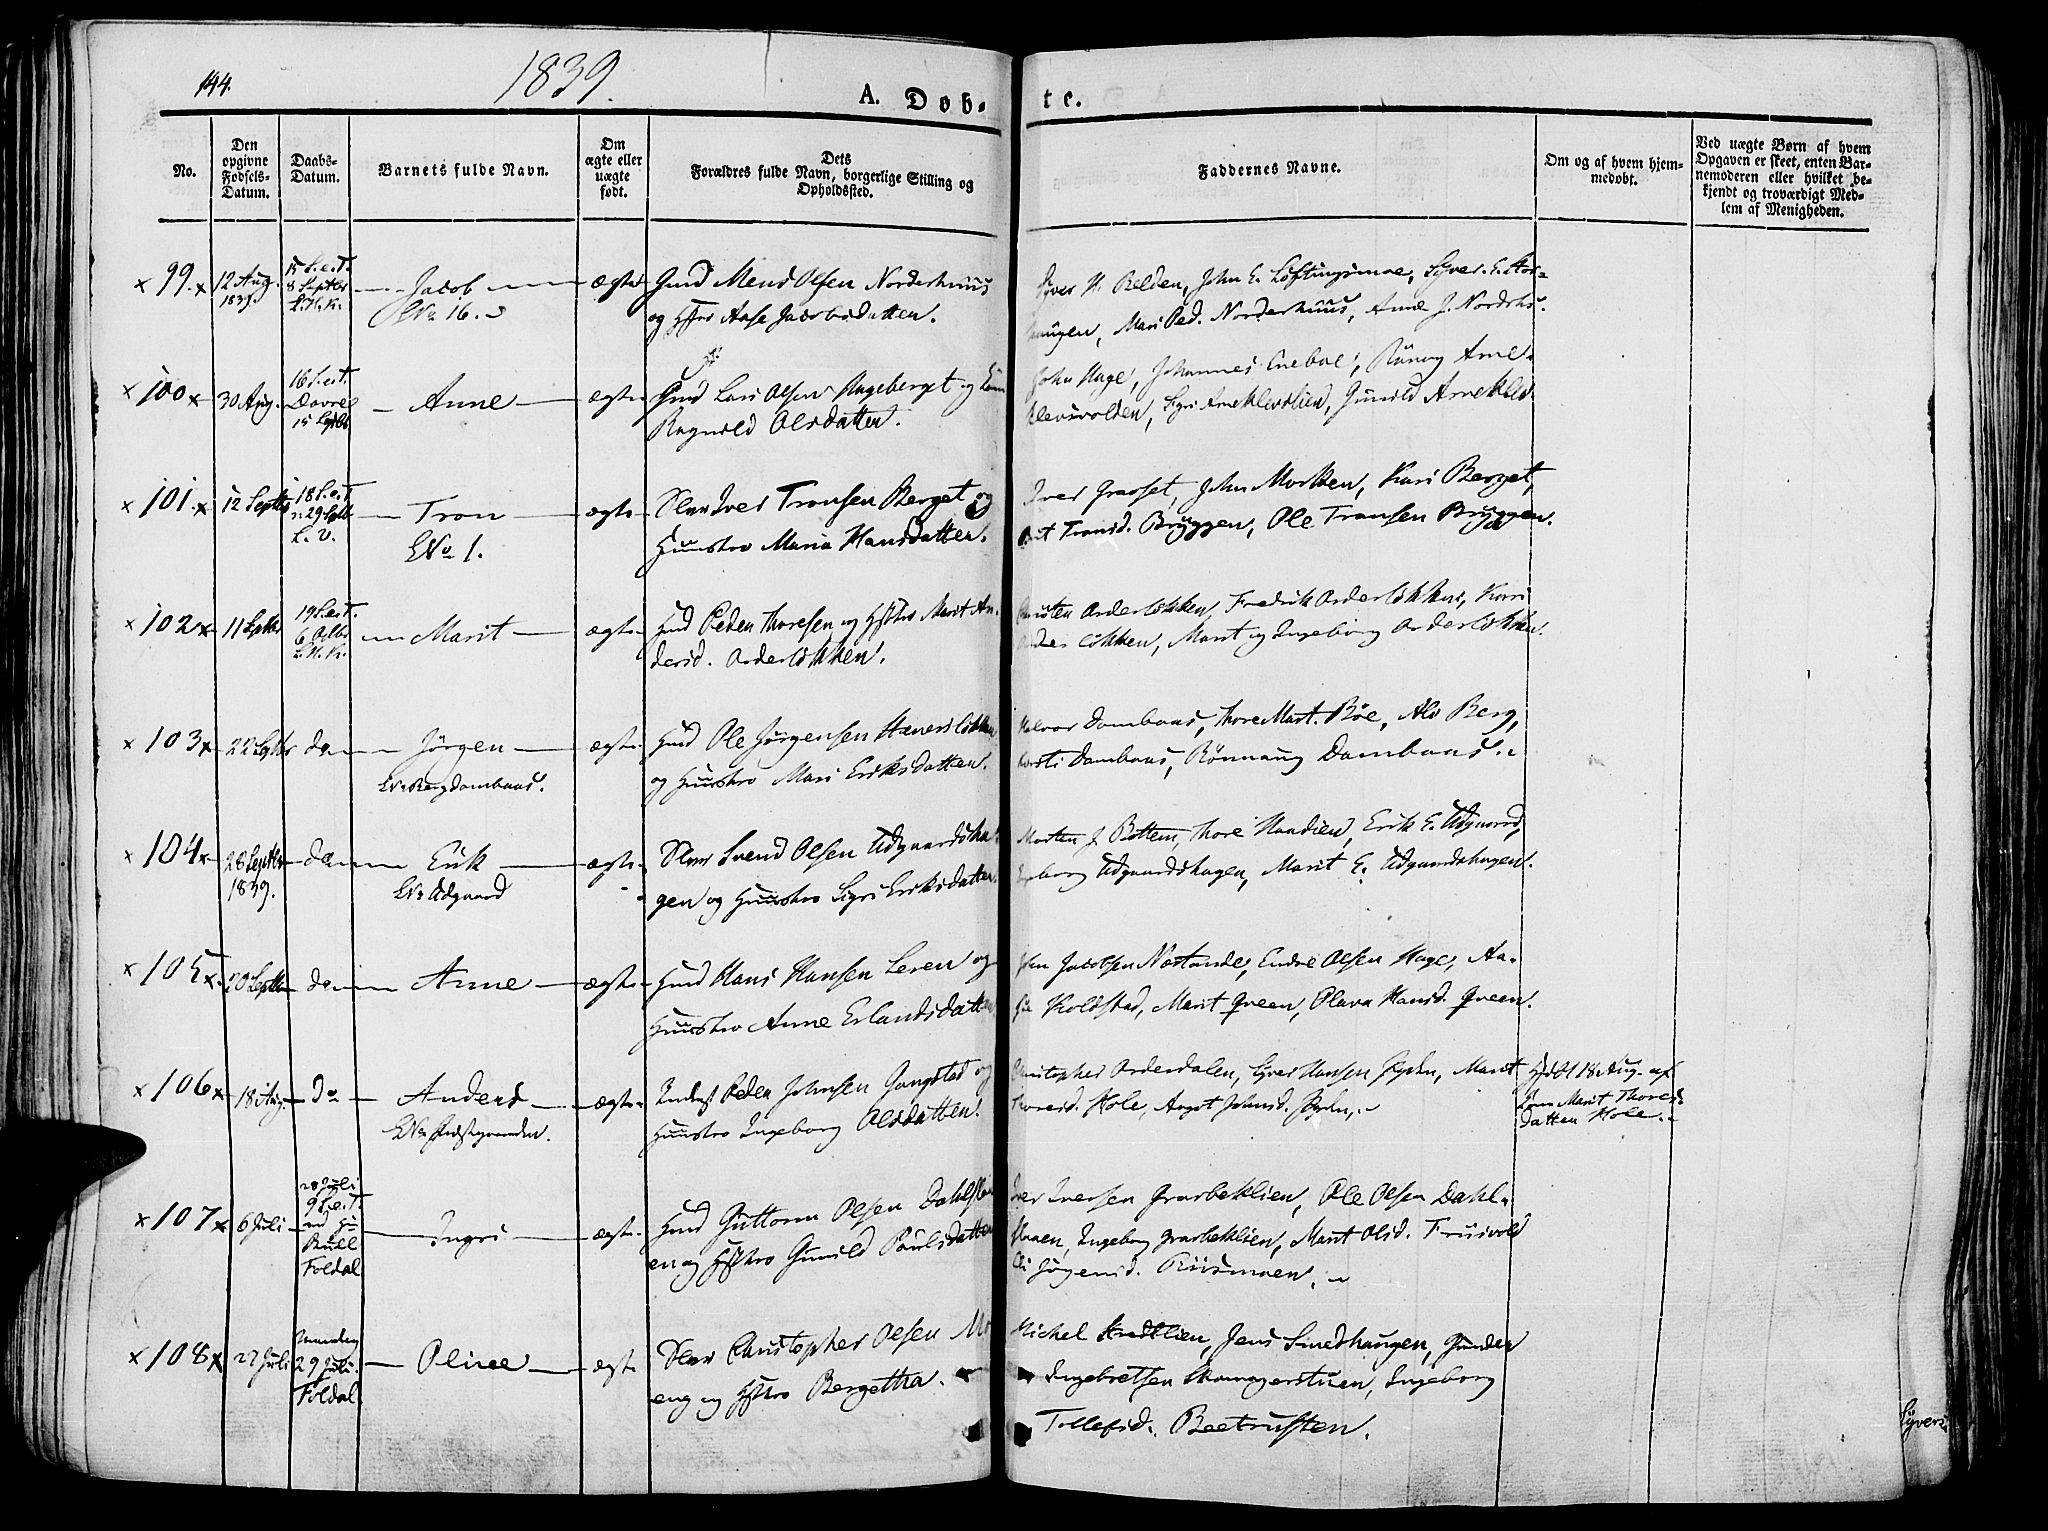 144.
1839.
A. Døb-
te.
No.
Den opgivne Fødsels-Datum.
Daabs-Datum.
Barnets fulde Navn.
Om ægte eller uægte født.
Dets Forældres fulde Navn, borgerlige Stilling og Opholdssted.
Faddernes Navne.
Om og af hvem hjem-medøbt.
Ved uægte Børn af hvem Opgaven er skeet, enten Bar-nemoderen eller hvilket be-kjendt og troværdigt Med-lem af Menigheden.
99. 12 Aug. 1839. 15 S.e.T. 8 Septbr L.H.K. Jacob No 16. ægte
Gmd Mens Olsen Norderhuus
og Hstr Aase Jacobsdatter.
Syver H. Belden, John E. Løftingsmoe, Syver E. Stor-
haugen, Mari Ped. Norderhuus, Anne J. Nordrhs.
100 30 Aug. 16 S.e.T. Dovre 15 Septbr Anne ægte
Gmd Lars Olsen Hageberget og
Ragnild Olsdatter.
John Hage, Johannes Eneboe, Rønnog Arne-
klevsvolden, Sigri Arneklevslien, Gunild Arneklev.
101. 12 Septbr 18 S.e.T. 29 Septb L. v. Tron No 1. ægte
Iver Tronsen Berget og
Huustro Maria Hansdatter.
Iver Graaset, John Morken, Kari Berget,
Brit Tronsd. Bryggen, Ole Tronsen Bryggen.
102 11 Septbr 19 S.e.T. 6 Octbr L.H.K. Marit ægte
Hmd Peder Thoresen og Hstro Marit An-
dersd. Arderløkken.
Christen Arderløkken, Fredrik Arderløkken, Kari
Arderløkken, Marit og Ingeborg Arderløkken.
103 22 Septbr do Jørgen No Berg Dombaas. ægte
Hmd Ole Jørgensen Hanersløkken
og Huustro Mari Eriksdatter.
Halvor Dombaas, Thore Mart. Bøe, Ale Berg,
Kersti Dombaas, Rønnaug Dombaas.
104 28 Septbr 1839. do Erik No Udgaard ægte
Svend Olsen Udgaardsha-
gen og Huustro Sigri Eriksdatter.
Morten J Bottem, Thore Haadien, Erik E. Udgaard,
Ingeborg Udgaardshagen, Marit E. Udgaardshagen.
105. 20 Septbr do Anne ægte
Hmd Hans Hansen Leren og
Huustro Anne Erlandsdatter
John Jacobsen Nørstande, Endre Olsen Hage, Aa-
se Koldstad, Marit Qveen, Olava Hansd. Qveen.
106 18 Aug. do Anders ægte
Inderst Peder Johnsen Gangstad og
Huustro Ingeborg Olsdatter.
Christopher Arderdalen, Syver Hansen, Marit
Thoresd. Hole, Aagot Johnsd.
Hjdbt 18 Aug. af
Marit Thores-
datter Hole.
107 6 Juli 28 Juli 9 S.e.T. Bull Foldal Ingri ægte
Hmd Guttorm Olsen Dahlsløen
en og Hstro Gunild Paulsdatter
Iver Iversen Grarbeklien, Ole Olsen Dahl-
sløen, Ingeborg Grarbeklien, Marit Olsd. Fruisvold
Jørgensd. Riismoen.
108 27 Juli Mandag 29 Juli. Foldal Oline ægte
Christopher Olsen Mo-
eng og Hstro Bergetha.
Michel Kroklien, Jens Smedhaugen, Gunder
Ingebretsen Skomagerstuen, Ingeborg
Tollefsd. Beetrusten.
Syvers